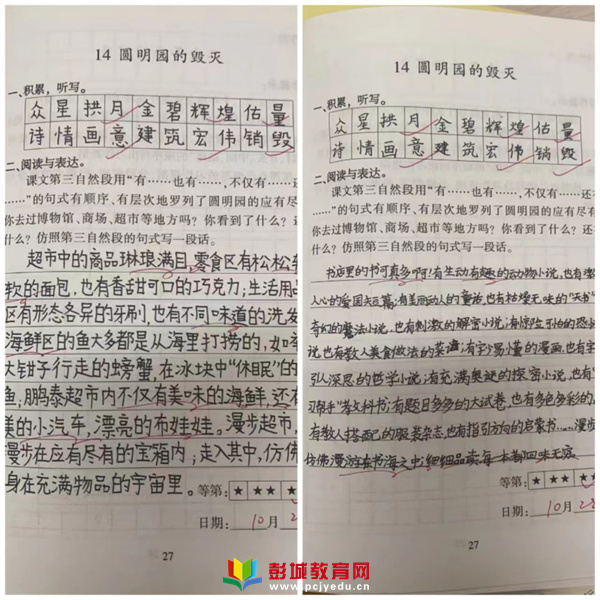 14 圆明园的毁灭
一、积累,听写。
众星拱月金碧辉煌估量
诗情画意建筑宏伟销毁
二、阅读与表达。
课文第三自然段用“有……也有……,不仅有……还
……”的句式有顺序、有层次地罗列了圆明园的应有尽
你去过博物馆、商场、超市等地方吗?你看到了什么?还
什么?仿照第三自然段的句式写一段话。
超市中的商品琳琅满目,零食区有松松
软的面包,也有香甜可口的巧克力;生活用
区有形态各异的牙刷,也有不同味道的洗发
海鲜区的鱼大多都是从海里打捞的,如
大钳子行走的螃蟹,在冰块中“休眠”的
鱼;鹏泰超市内不仅有美味的海鲜,还
美的小汽车,漂亮的布娃娃。漫步超市,
漫步在应有尽有的宝箱内;走入其中,仿佛
身在充满物品的宇宙里。
等第:★ ★★ ★
日期: 10月
27
14 圆明园的毁灭
一、积累,听写。
众星拱月金碧辉煌估量
诗情画意建筑宏伟销毁
二、阅读与表达。
课文第三自然段用“有……也有……,不仅有……还
……”的句式有顺序、有层次地罗列了圆明园的应有尽
你去过博物馆、商场、超市等地方吗?你看到了什么?还
什么?仿照第三自然段的句式写一段话。
书店里的书可真多啊!有生动有趣的动物小说,也有
人心的爱国夹篇;有美丽动人的童话,也有枯燥无味的“天书”
奇幻的魔法小说,也有刺激的解密小说;有惊险可怕的恐
说,也有教人美食做法的菜谱;有字少易懂的漫画,也有
引人深思的哲学小说;有充满奥秘的探密小说,也有
习帮手”教科书;有题目多多的大试卷,也有多色多彩的
有教人搭配的服装杂志,也有指引方向的启蒙书……漫步
仿佛漫游在书海之中;细细品读,每一本都回味无穷。
等第:★ ★★ ★
日期: 10月
27
彭城教育网
www.pcjyedu.cn